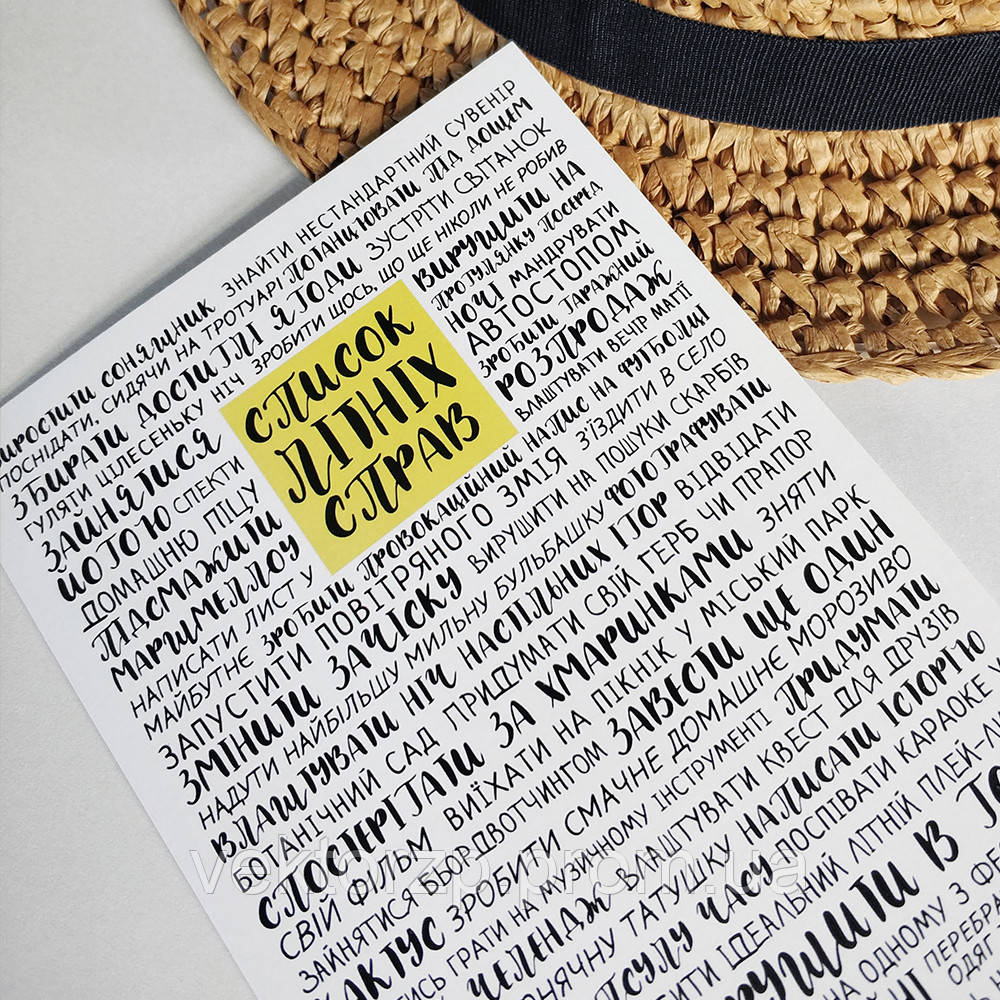 ИРОСТИТИ СОНЯШНИК ЗНАЙТИ НЕСТАНДАРТНИЙ СУВЕНІР
ПОСНІДАТИ, СИДЯЧИ НА ТРОТУАРІ ПОТАНЦЮВАТИ ПІД ДОЩЕМ
ЗБИРАТИ ДОСТИГЛІ ЯГОДИ ЗУСТРІТИ СВІТАНОК
ГУЛЯТИ ЦІЛЕСЕНЬКУ НІЧ ЗРОБИТИ ЩОСЬ, ЩО ЩЕ НІКОЛИ НЕ РОБИВ
ЗАЙНЯТИСЯ
ЙОГОЮ СПЕКТИ
ДОМАШНЮ ПІЦУ
ПІДСМАЖИТИ
МАРШМЕЛЛОУ
НАПИСАТИ ЛИСТ У
СПИСОК
ЛІТНІХ
СПРАВ
ВИРУШИТИ НА
ПРОГУЛЯНКУ ПОСЕРЕД
НОЧІ МАНДРУВАТИ
АВТОСТОПОМ
ЗРОБИТИ ГАРАЖНИЙ
РОЗПРОДАЖ
ВЛАШТУВАТИ ВЕЧІР МАГІЇ
МАЙБУТНЄ ЗРОБИТИ ПРОВОКАЦІЙНИЙ НАПИС НА ФУТБОЛЦІ
ЗАПУСТИТИ ПОВІТРЯНОГО ЗМІЯ З'ЇЗДИТИ В СЕЛО
ЗМІНИТИ ЗАЧІСКУ ВИРУШИТИ НА ПОШУКИ СКАРБІВ
НАДУТИ НАЙБІЛЬШУ МИЛЬНУ БУЛЬБАШКУ ФОТОГРАФУВАТИ
ВЛАШТУВАТИ НІЧ НАСТІЛЬНИХ ІГОР ВІДВІДАТИ
БОТАНІЧНИЙ САД ПРИДУМАТИ СВІЙ ГЕРБ ЧИ ПРАПОР
СПОСТЕРІГАТИ ЗА ХМАРИНКАМИ ЗНЯТИ
СВІЙ ФІЛЬМ ВИЇХАТИ НА ПІКНІК У МІСЬКИЙ ПАРК
ЗАЙНЯТИСЯ БЬОРДВОТЧИНГОМ ЗАВЕСТИ ЩЕ ОДИН
КАКТУС ЗРОБИТИ СМАЧНЕ ДОМАШНЄ МОРОЗИВО
ТИСЬ ГРАТИ НА МУЗИЧНОМУ ІНСТРУМЕНТІ ПРИДУМАТИ
ЧЕЛЕНДЖ ВЛАШТУВАТИ КВЕСТ ДЛЯ ДРУЗІВ
НЯЧНУ ТАТУШКУ НАПИСАТИ ІСТОРІЮ
ПСУЛУ ЧАСУ ПОСПІВАТИ КАРАОКЕ
ИТИ ІДЕАЛЬНИЙ ЛІТНІЙ ПЛЕЙ-Л
РУШИТИ В
НА ОДНОМУ З ФЕ
ПЕРЕБРА
ОДЯГ
vektorzp.prom.ua